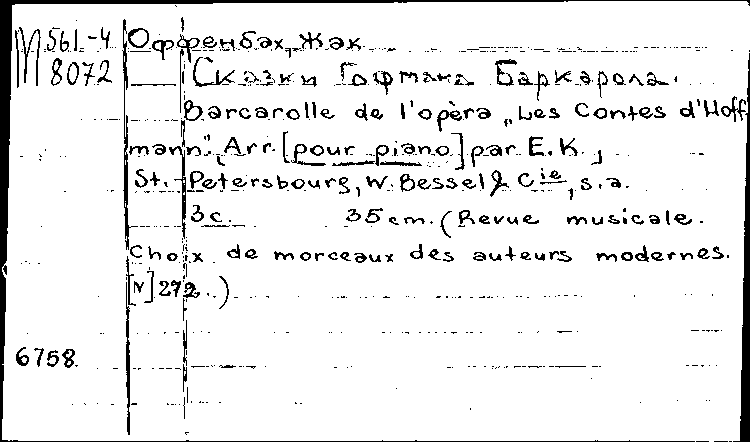 М 561-4 Оффенбах, Жак
8072 Сказки Гофмана Баркарола.
Barcarolle de l'opèra „Les Contes d'Hoff-
mann", Arr. [pour piano] par E.K.,
St.-Petersbourg, W. Bessel & Cie, s.a.
3 c. 35 cm. (Revue musicale.
Choix de morceaux des auteurs modernes.
[N] 272.)
6758